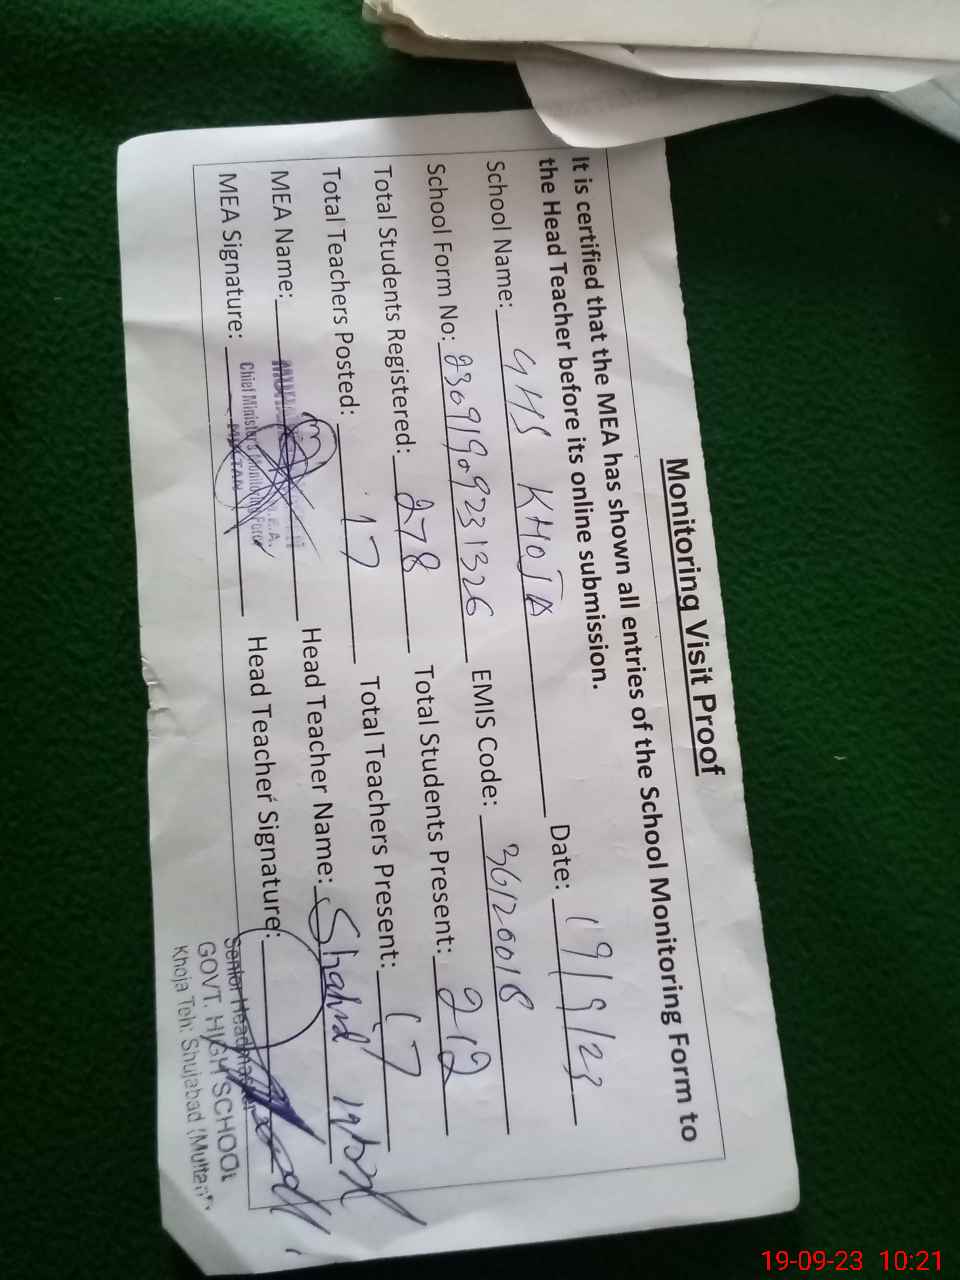 Monitoring Visit Proof
It is certified that the MEA has shown all entries of the School Monitoring Form to
the Head Teacher before its online submission.
School Name: GHS KHOJA Date: 19/9/23
School Form No: 23091909231326 EMIS Code: 36120018
Total Students Registered: 278 Total Students Present: 212
Total Teachers Posted: 17 Total Teachers Present: 17
MEA Name: Head Teacher Name: Shahid Iqbal
MEA Signature: Head Teacher Signature:
M.E.A.
Chief Minister's Monitoring Force
MULTAN
Senior Headmaster
GOVT. HIGH SCHOOL
Khoja Teh: Shujabad (Multan)
19-09-23 10:21